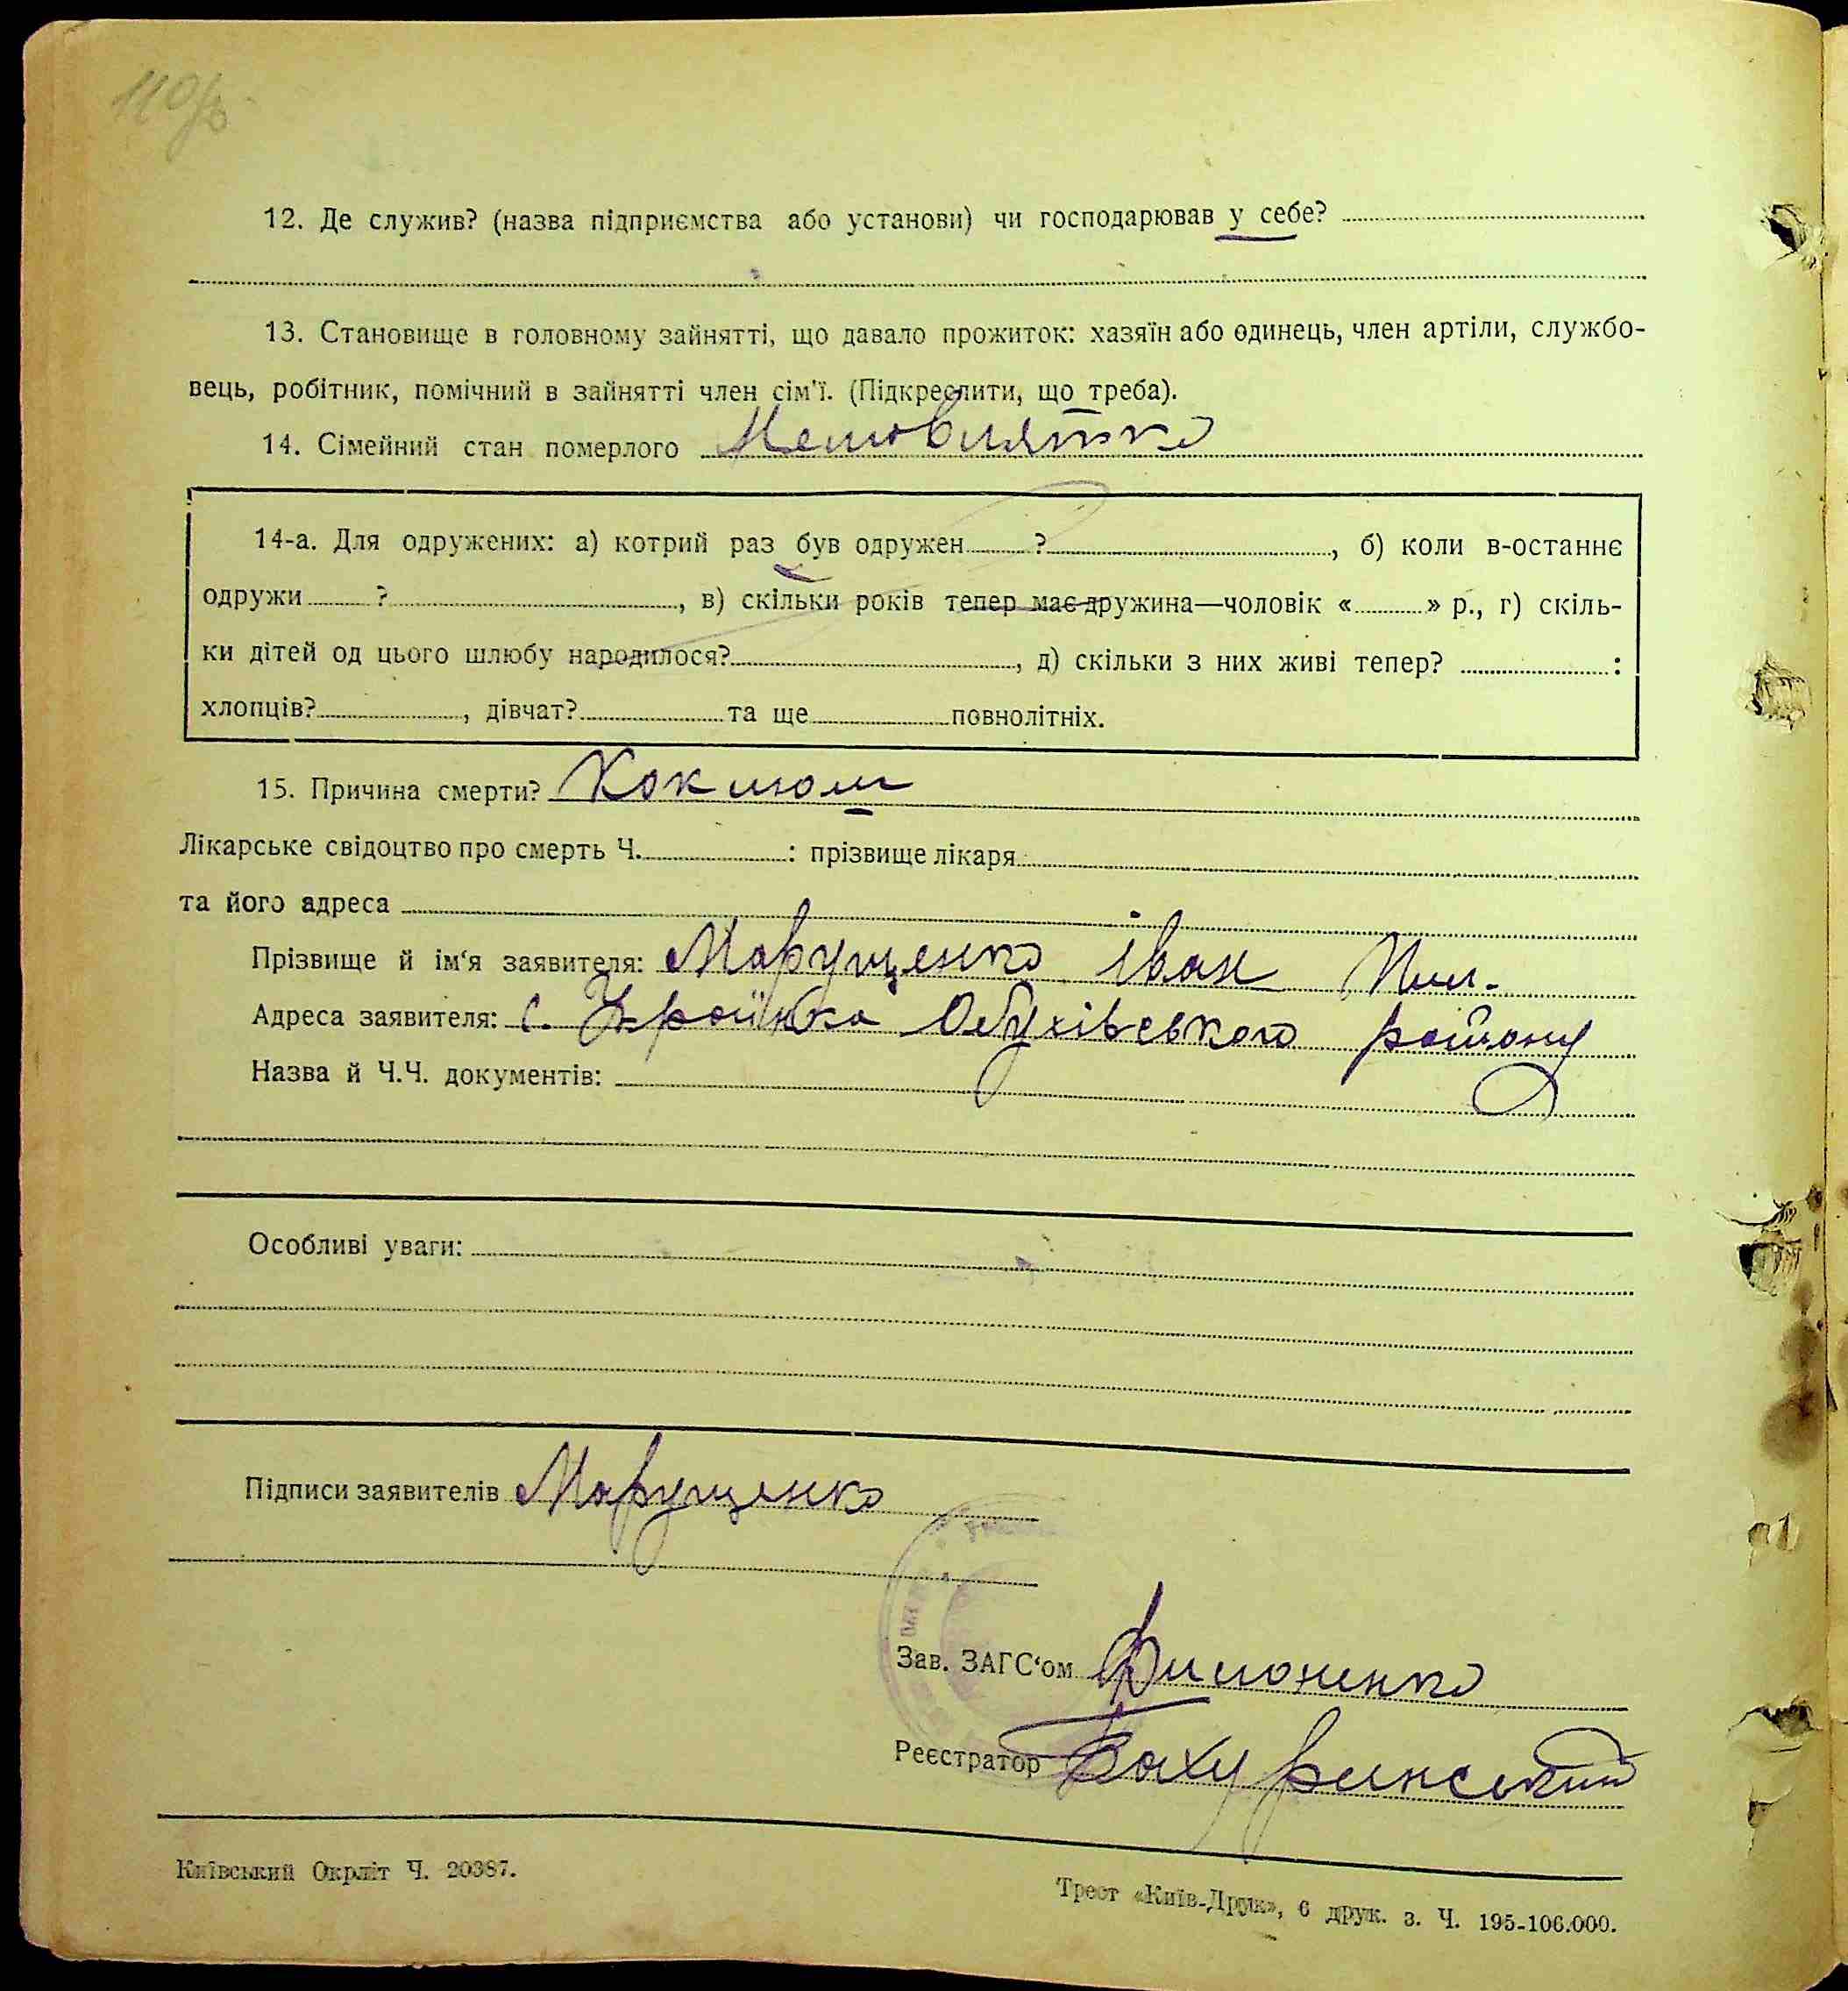 110
12. Де служив? (назва підприємства або установи) чи господарював у себе?
13. Становище в головному зайнятті, що давало прожиток: хазяїн або одинець, член артіли, службо-
вець, робітник, помічний в зайнятті член сім'ї. (Підкреслити, що треба).
14. Сімейний стан померлого Немовлятко
14-а. Для одружених: а) котрий раз був одружен ? , б) коли в-останнє
одружи ? , в) скільки років тепер має дружина—чоловік « » р., г) скіль-
ки дітей од цього шлюбу народилося? , д) скільки з них живі тепер? :
хлопців? , дівчат? та ще повнолітніх.
15. Причина смерти? Коклюш
Лікарське свідоцтво про смерть Ч. : прізвище лікаря
та його адреса
Прізвище й ім'я заявителя: Марущенко Іван
Адреса заявителя: с. Українка Обухівського району
Назва й Ч.Ч. документів:
Особливі уваги:
Підписи заявителів Марущенко
Зав. ЗАГС'ом Филоненко
Реєстратор Бахуринський
Київський Окрліт Ч. 20387.
Трест «Київ-Друк», 6 друк. з. Ч. 195-106.000.